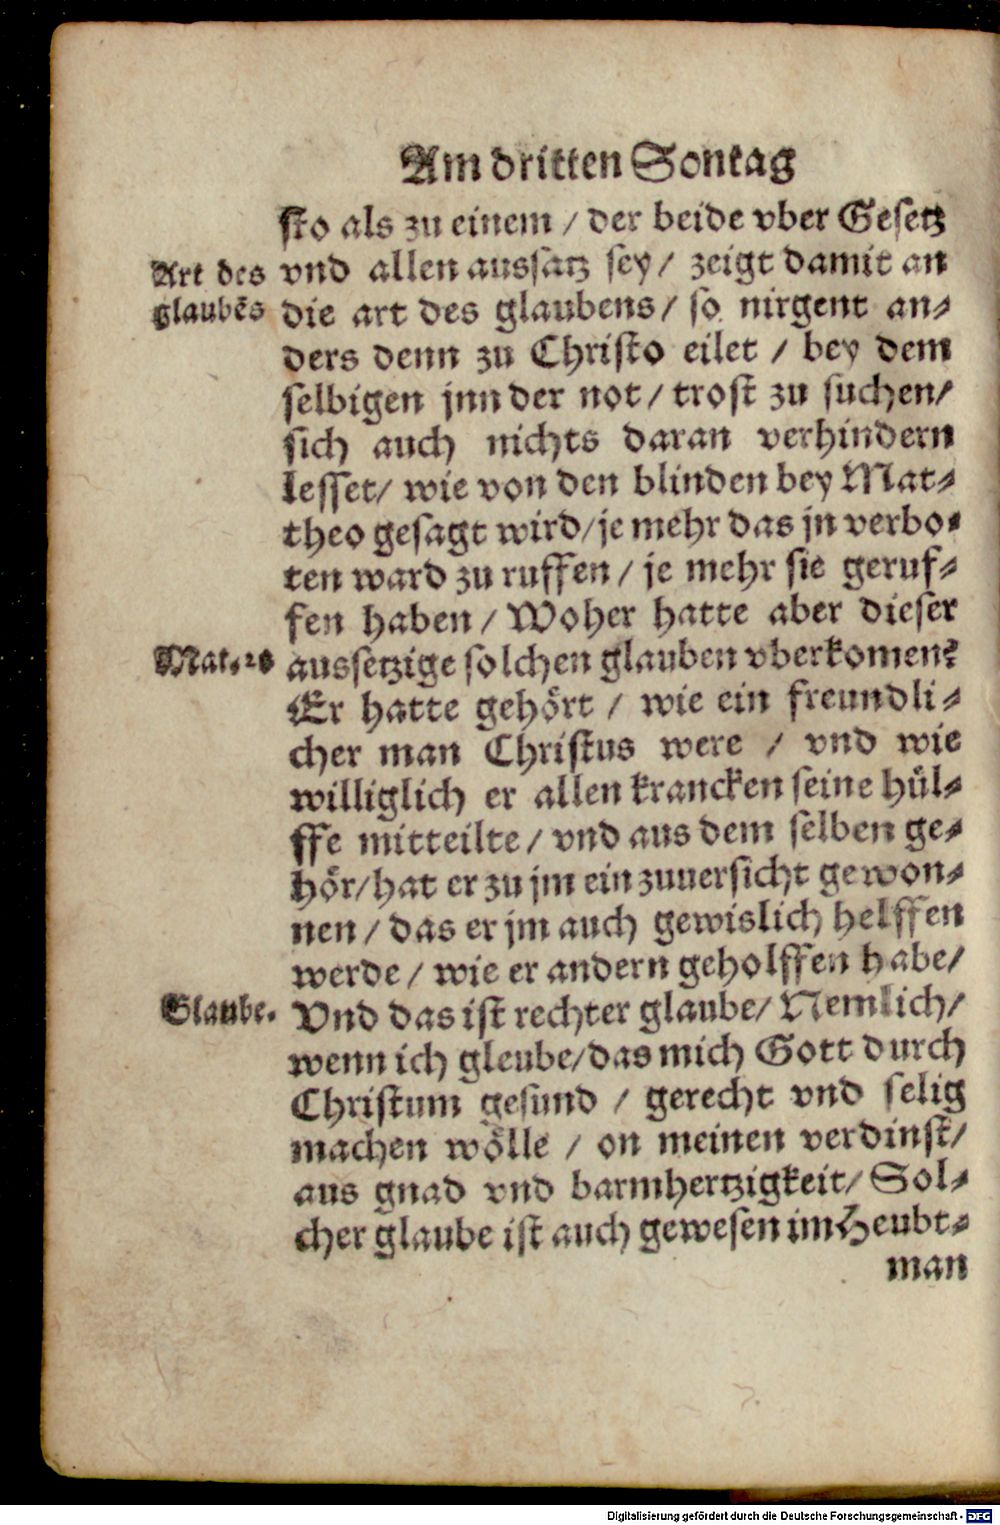 Am dritten Sontag
sto als zu einem / der beide vber Gesetz
Art des
glaubēs
vnd allen aussatz sey / zeigt damit an
die art des glaubens / so nirgent an⸗
ders denn zu Christo eilet / bey dem
selbigen jnn der not / trost zu suchen /
sich auch nichts daran verhindern
lesset / wie von den blinden bey Mat⸗
theo gesagt wird / je mehr das jn verbo⸗
ten ward zu ruffen / je mehr sie geruf⸗
fen haben / Woher hatte aber dieser
Mat. 20
aussetzige solchen glauben vberkomen?
Er hatte gehört / wie ein freundli⸗
cher man Christus were / vnd wie
williglich er allen krancken seine hül⸗
ffe mitteilte / vnd aus dem selben ge⸗
hör / hat er zu jm ein zuuersicht gewon⸗
nen / das er jm auch gewislich helffen
werde / wie er andern geholffen habe /
Glaube.
Vnd das ist rechter glaube / Nemlich /
wenn ich gleube / das mich Gott durch
Christum gesund / gerecht vnd selig
machen wölle / on meinen verdinst /
aus gnad vnd barmhertzigkeit / Sol⸗
cher glaube ist auch gewesen im Heubt⸗
man
Digitalisierung gefördert durch die Deutsche Forschungsgemeinschaft - DFG